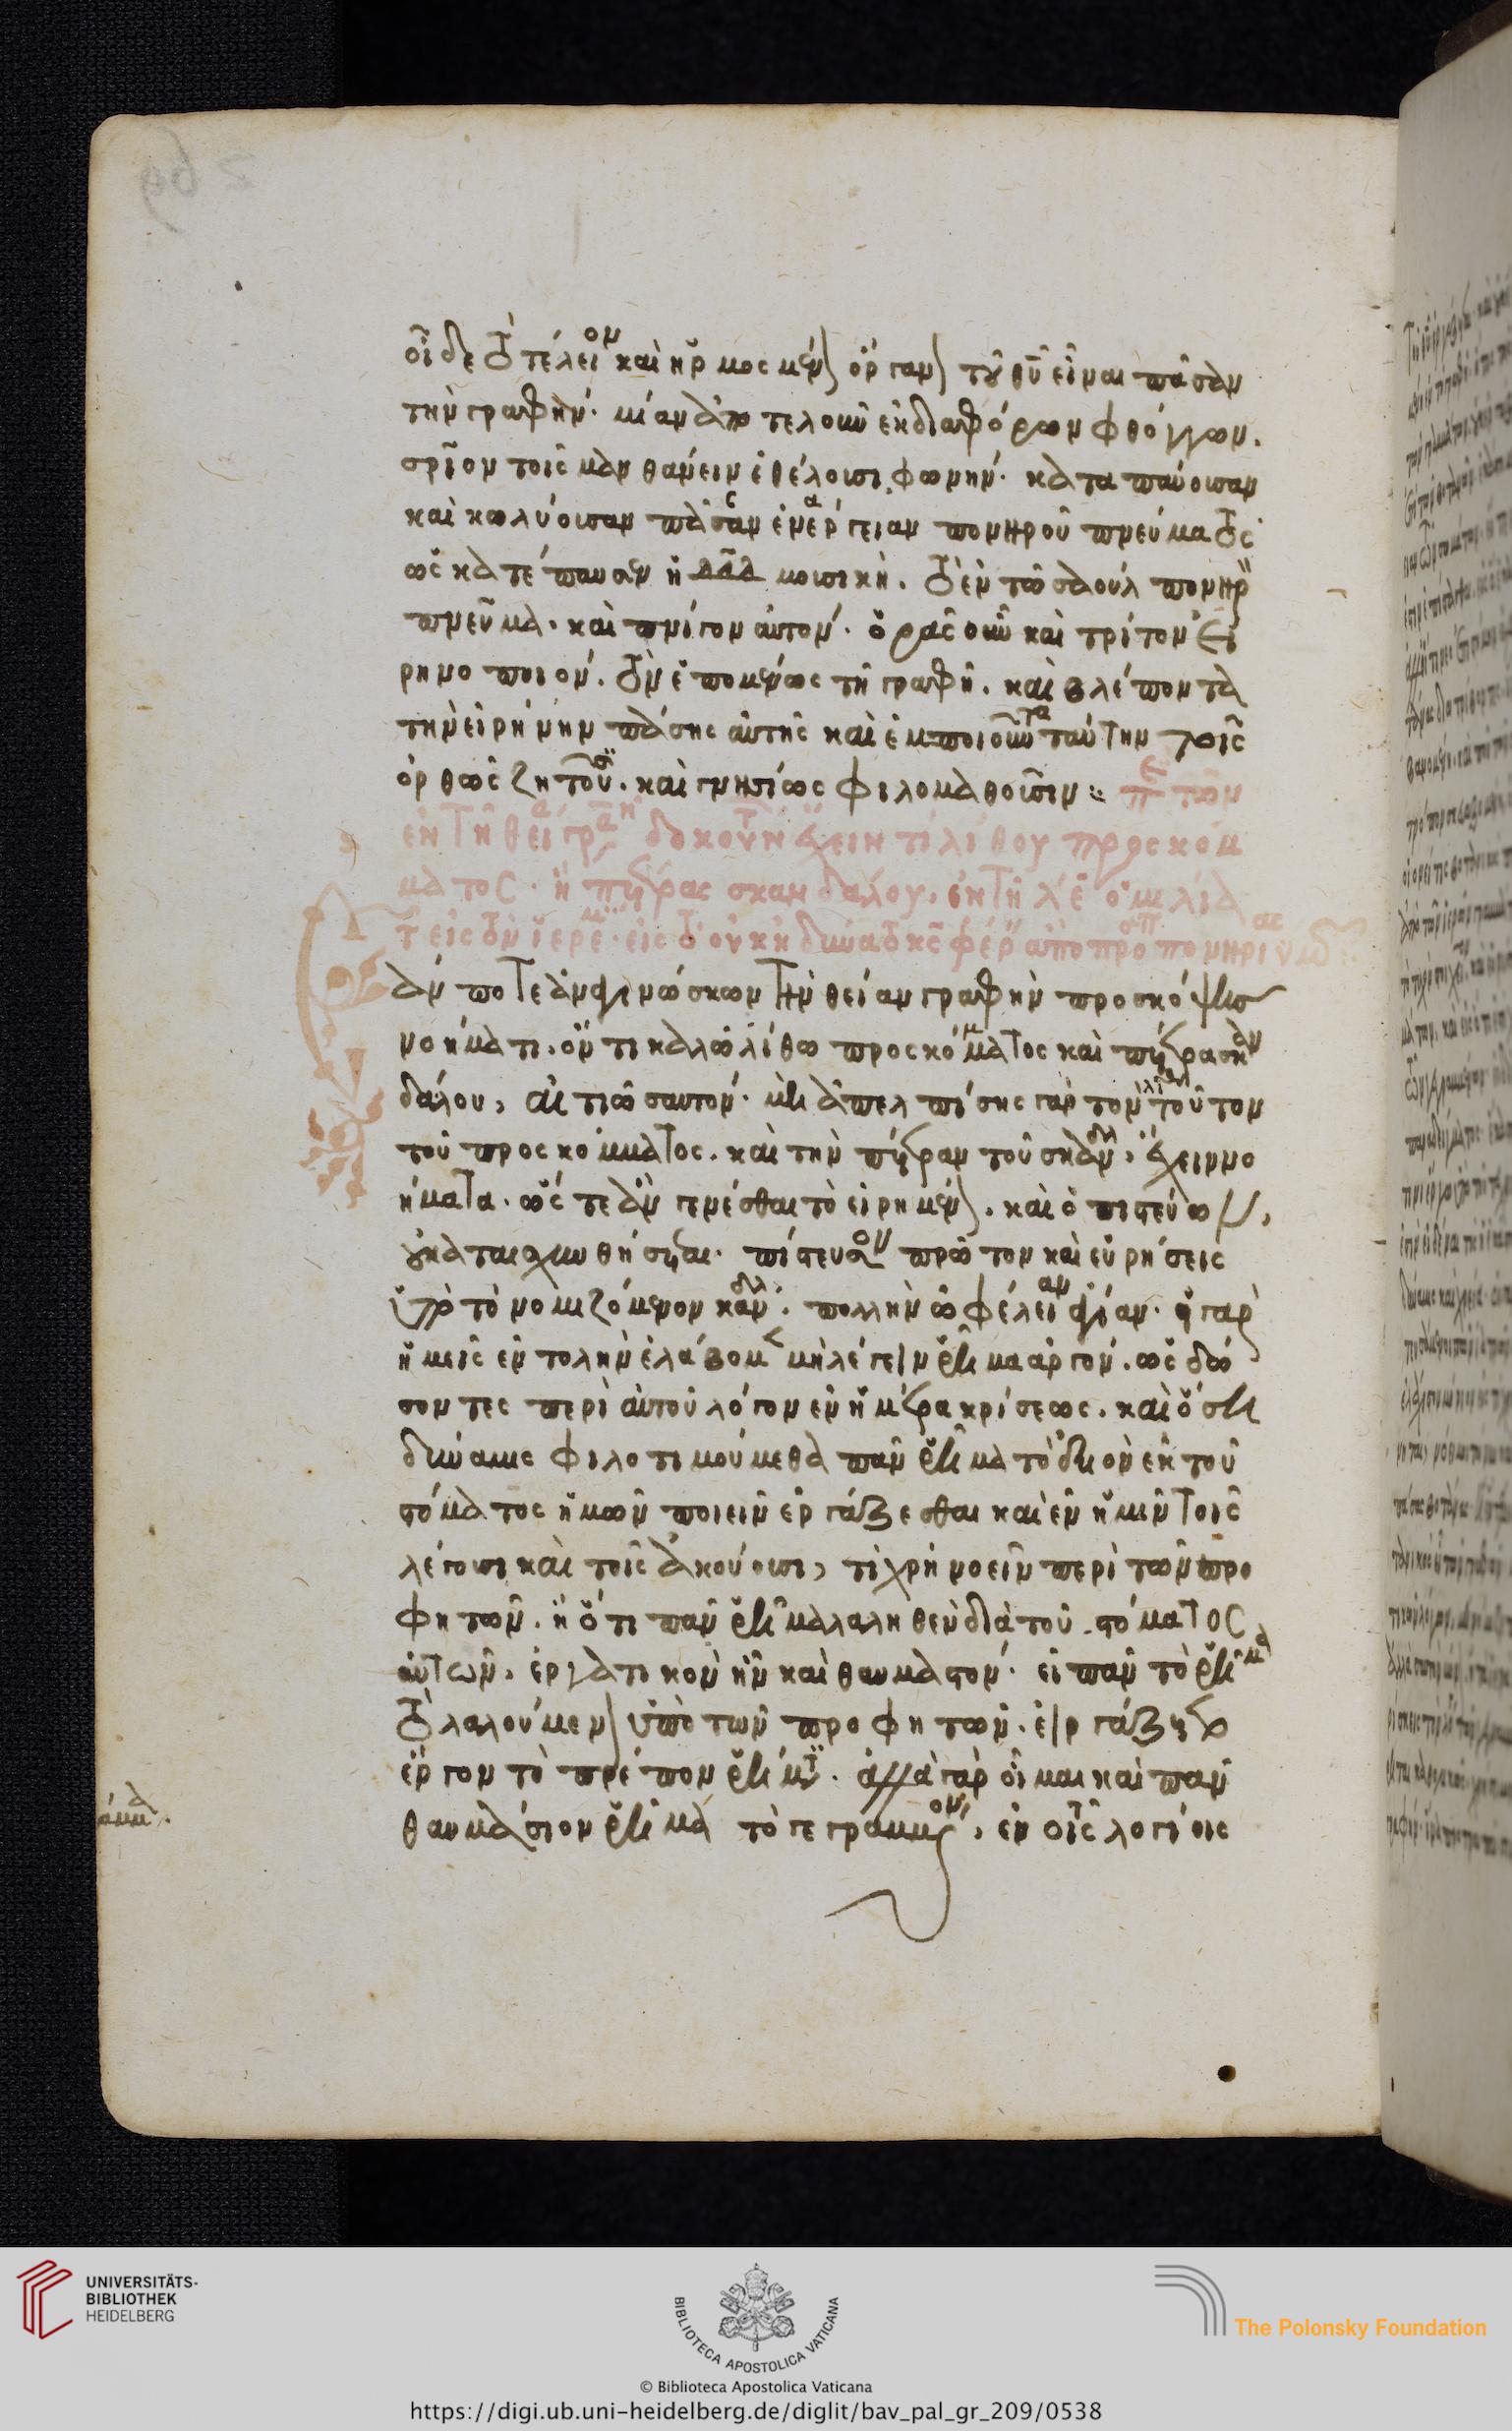 οἶδε τὸ τέλειον καὶ ἡρμοσμένον ὄργανον τοῦ θῦ εἶναι πᾶσαν
τὴν γραφήν. μίαν ἀποτελοῦν ἐκ διαφόρων φθόγγων.
σρῖον τοῖς μανθάνειν ἐθέλουσι φωνήν. καταπαύουσαν
καὶ κωλύουσαν πᾶσαν ἐνέργειαν πονηροῦ πνεύματος
ὡς κατέπαυσεν ἡ δᾶδ μουσικὴ. τὸ ἐν τῶ σαοὺλ πονηρὸν
πνεῦμα. καὶ πνίγον αὐτόν. ὁρᾶς οὖν καὶ τρίτον εἰ
ρηνοποιόν. τὸν ἑπομένως τῆ γραφῆ. καὶ βλέποντα
τὴν εἰρήνην πάσης αὐτῆς καὶ ἐμποιοῦντα ταύτην τοῖς
ὀρθῶς ζητοῦσι. καὶ γνησίως φιλομαθοῦσιν
ἐν τῆ θεία γραφῆ δοκούντων ἔχειν τὶ λίθου προσκόμ
ματος. ἢ πέτρας σκανδάλου. ἐν τῆ λθ ὁμιλία
ἂν ποτε ἀναγινώσκων τὴν θείαν γραφὴν προσκόψης
νοήματι. ὄντι καλῶ λίθω προσκόμματος καὶ πέτρα σκαν
δάλου, αἰτιῶ σαυτόν. μὴ ἀπελπίσης γὰρ τὸν λίθον τοῦτον
τοῦ προσκόμματος. καὶ τὴν πέτραν τοῦ σκανδάλου, ἔχειν νο
ήματα. ὥστε ἂν γενέσθαι τὸ εἰρημένον. καὶ ὁ πιστεύων,
οὐ καταισχυνθήσεται. πίστευσον πρῶτον καὶ εὑρήσεις
ὑπὸ τὸ νομιζόμενον σκάνδαλον. πολλὴν ὠφέλειαν ἁγίαν. εἰ γὰρ
ἡμεῖς ἐντολὴν ἐλάβομεν μὴ λέγειν ῥῆμα ἀργόν. ὡς δώ
σοντες περὶ αὐτοῦ λόγον ἐν ἡμέρα κρίσεως. καὶ ὅση
δύναμις φιλοτιμούμεθα πᾶν ῥῆμα τὸ ἐξιὸν ἐκ τοῦ
στόματος ἡμῶν ποιεῖν ἐργάζεσθαι καὶ ἐν ἡμῖν τοῖς
λέγουσι καὶ τοῖς ἀκούουσι, τὶ χρὴ νοεῖν περὶ τῶν προ
φητῶν. ἢ ὅτι πᾶν ῥῆμα λαληθὲν διὰ τοῦ στόματος
αὐτῶν, ἐργατικὸν ἦν καὶ θαυμαστόν. εἰ πᾶν τὸ ῥῆμα
τὸ λαλούμενον ὑπὸ τῶν προφητῶν. εἰργάζετο
ἔργον τὸ πρέπον ῥήματι. ἀλλὰ γὰρ οἶμαι καὶ πᾶν
θαυμάσιον ῥῆμα τὸ γεγραμμένον, ἐν τοῖς λογίοις
UNIVERSITÄTS-
BIBLIOTHEK
HEIDELBERG
BIBLIOTECA APOSTOLICA VATICANA
© Biblioteca Apostolica Vaticana
The Polonsky Foundation
https://digi.ub.uni-heidelberg.de/diglit/bav_pal_gr_209/0538